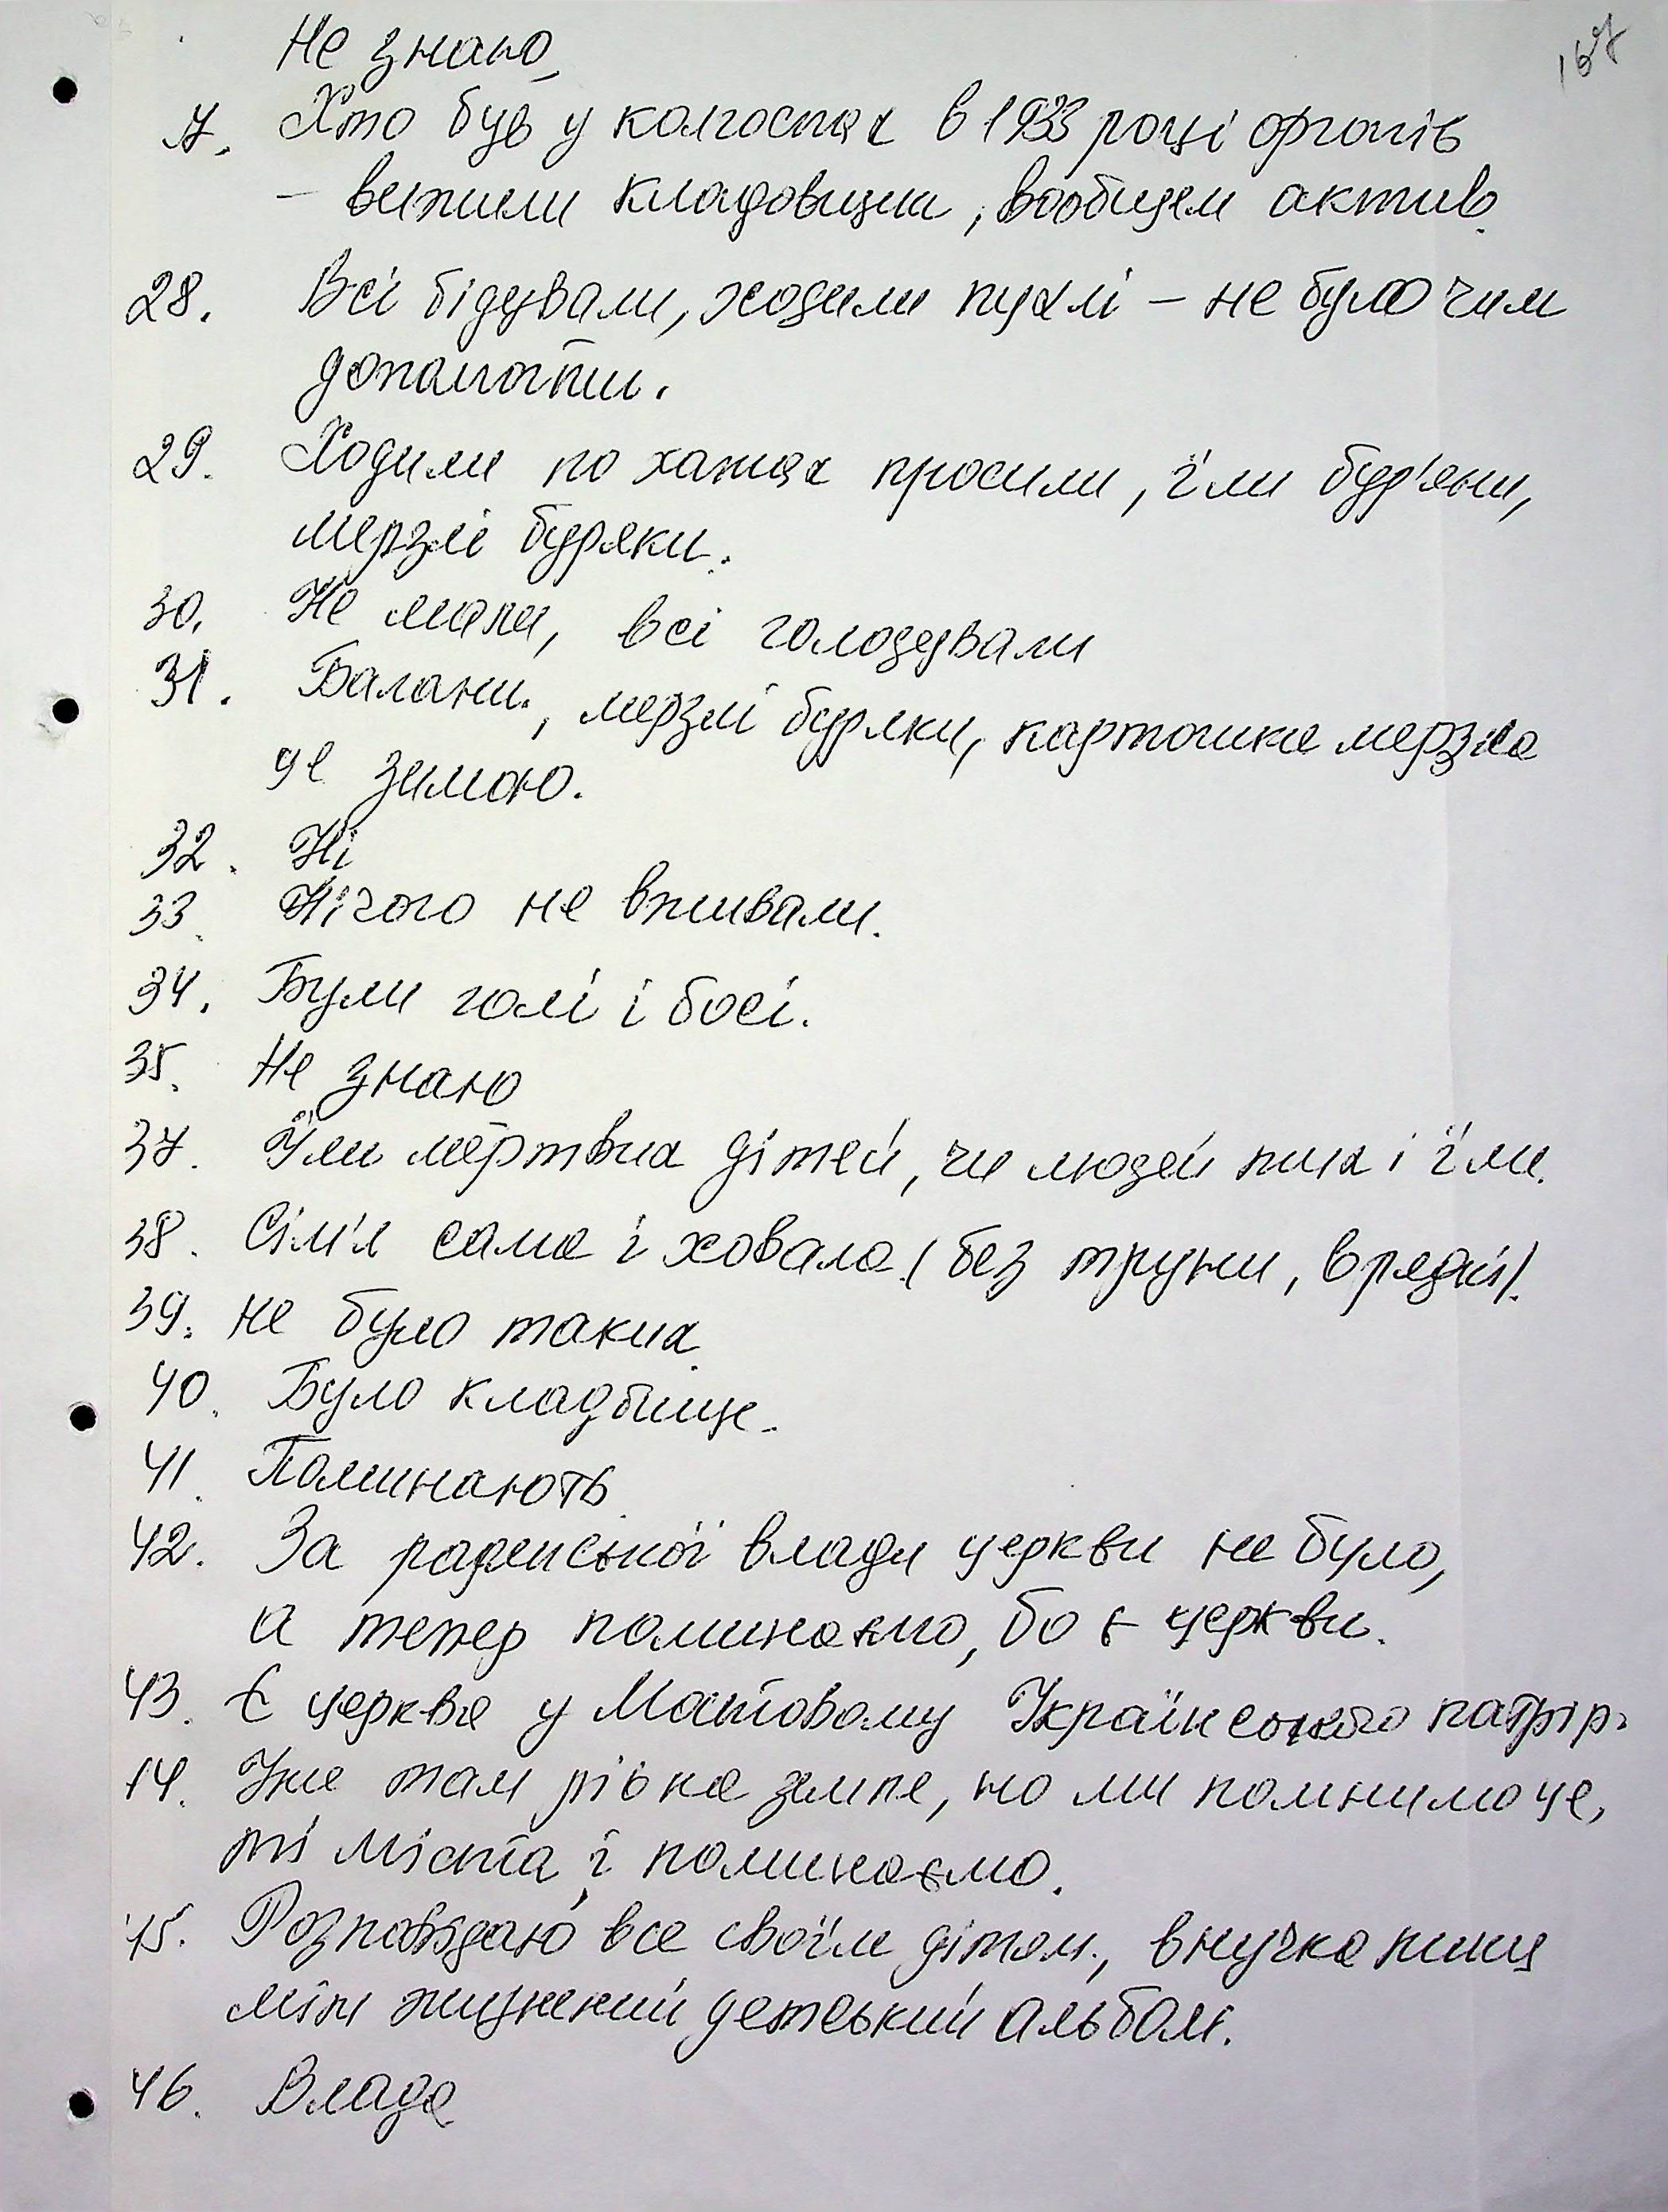 167
Не знаю
7. Хто був у колгоспах в 1933 році
– вижили кладовщики, вообщем актив.
28. Всі бідували, ходили пухлі – не було чим
допомогти.
29. Ходили по хатах просили, їли бур'яни,
мерзлі буряки.
30. Не мали, всі голодували
31. Балани, мерзлі буряки, картошка мерзла
де зимою.
32. Ні
33. Нічого не вживали.
34. Були голі і босі.
35. Не знаю
37. Їли мертвих дітей, чи людей тих і їли.
38. Сім'я сама і ховала (без труни, в рядні).
39. не було таких.
40. Було кладбище.
41. Поминають.
42. За радянської влади церкви не було,
а тепер поминаємо, бо є церкви.
43. Є церква у Мостовому Українського патрір.
44. Уже там рівна земле, но ми помнимо це,
ті міста і поминаємо.
45. Розповідаю все своїм дітям, внучка пише
мій жизнений детський альбом.
46. Влада